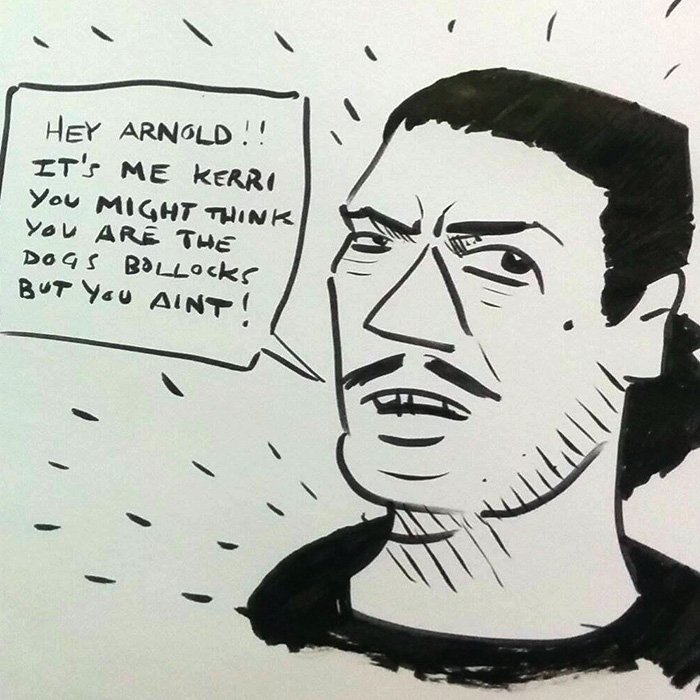 HEY ARNOLD!!
IT'S ME KERRI
YOU MIGHT THINK
YOU ARE THE
DOGS BOLLOCKS
BUT YOU AINT!